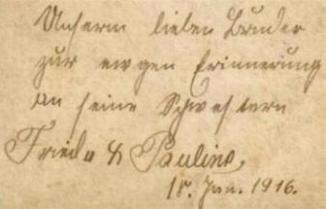 Unserm lieben Bruder
zur ewgen Erinnerung
an seine Schwestern
Frieda & Pauline,
18. Jan. 1916.